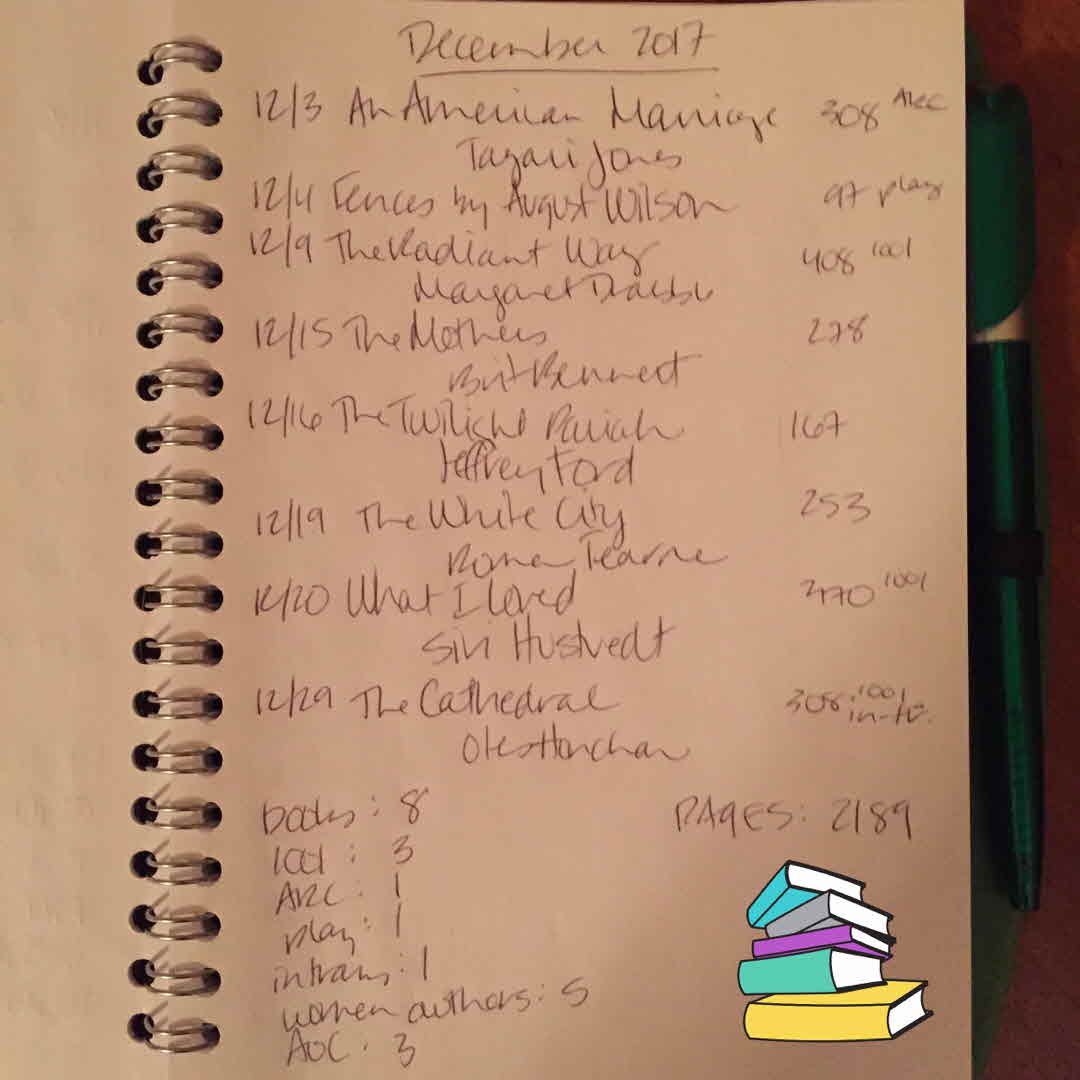 December 2017
12/3 An American Marriage 308 ARC
Tayari Jones
12/4 Fences by August Wilson 97 play
12/9 The Radiant Way 408 1001
Margaret Drabble
12/15 The Mothers 278
Brit Bennett
12/16 The Twilight Pariah 167
Jeffrey Ford
12/19 The White City 253
Roma Tearne
12/20 What I Loved 370 1001
Siri Hustvedt
12/29 The Cathedral 308 1001
in-tr.
Oles Honchar
books: 8
PAGES: 2189
1001: 3
ARC: 1
play: 1
in trans: 1
women authors: 5
AOC: 3